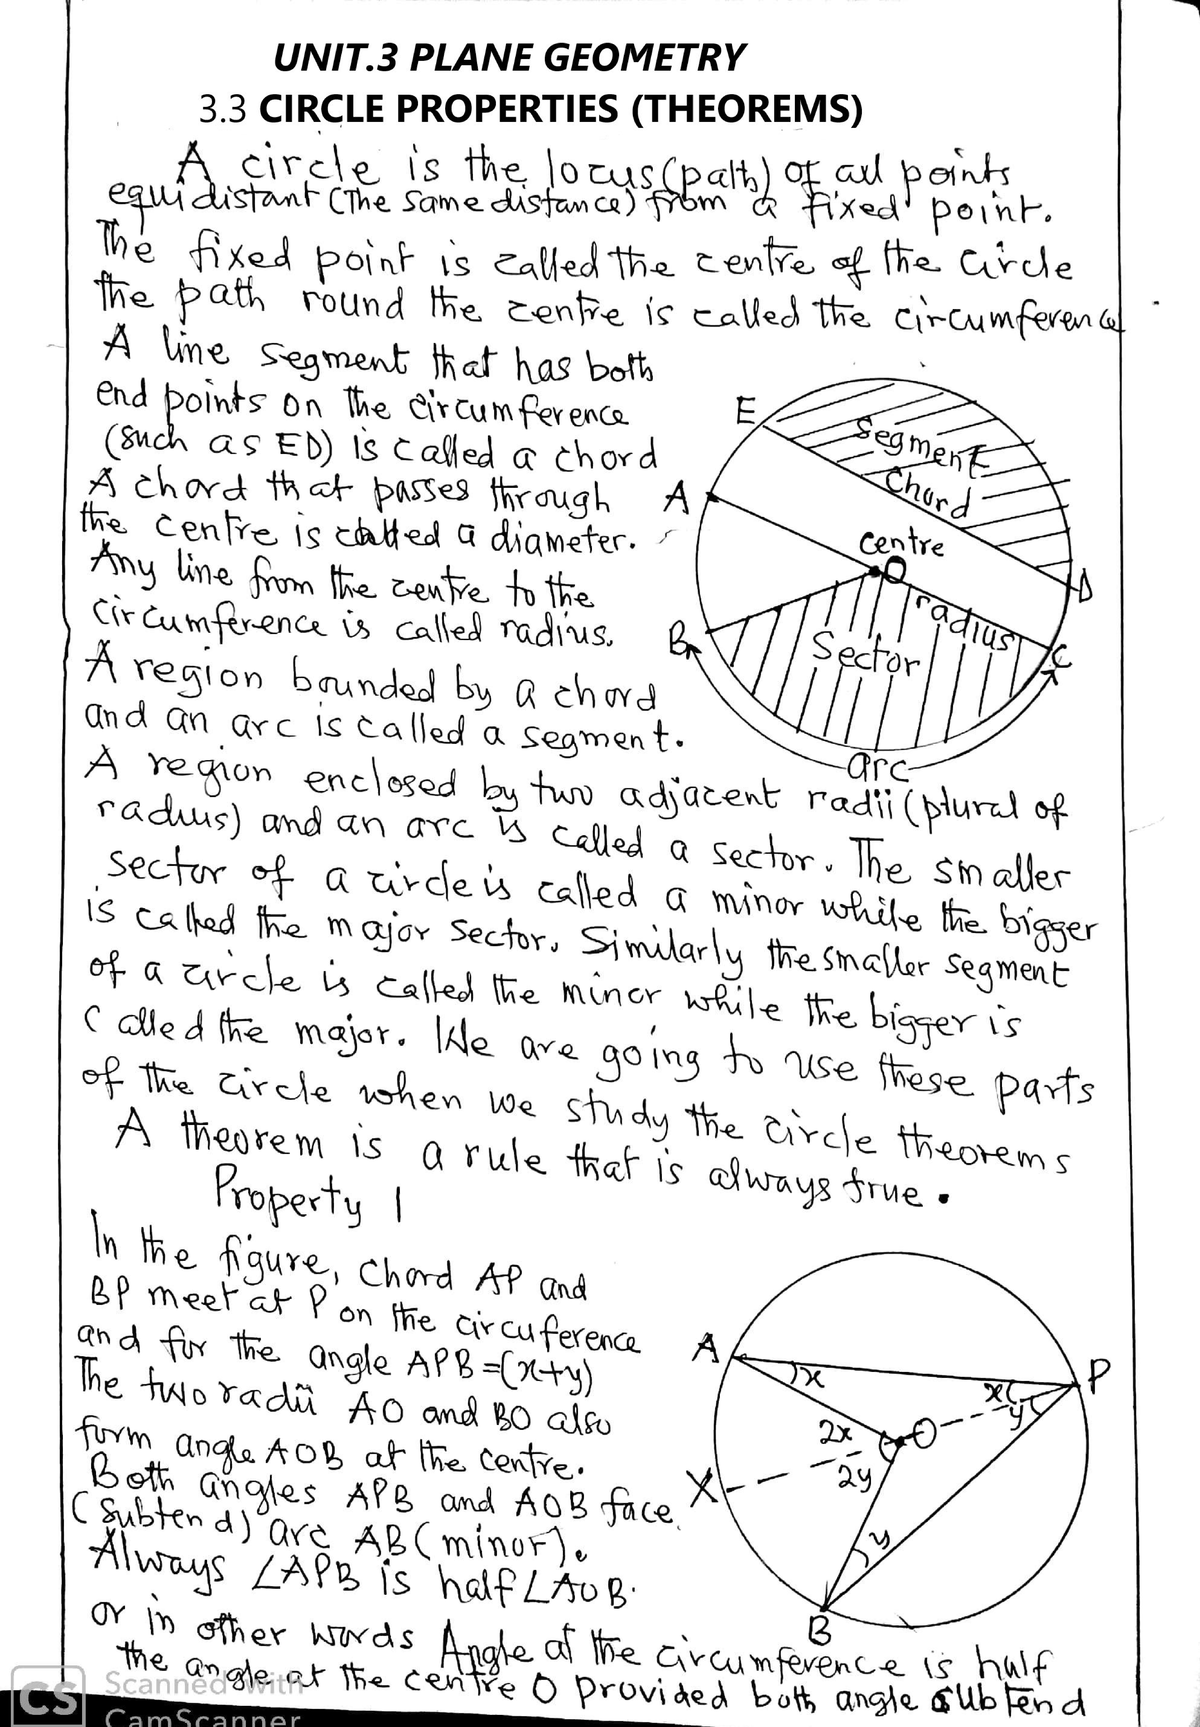 UNIT.3 PLANE GEOMETRY
3.3 CIRCLE PROPERTIES (THEOREMS)
A circle is the locus (path) of all points
equidistant (The same distance) from a fixed point.
The fixed point is called the centre of the circle
the path round the centre is called the circumference
A line segment that has both
end points on the circumference
(such as ED) is called a chord
A chord that passes through
the centre is called a diameter.
Any line from the centre to the
circumference is called radius.
A region bounded by a chord
and an arc is called a segment.
E
segment
Chord
A
centre
O
D
radius
B
Sector
C
arc
A region enclosed by two adjacent radii (plural of
radius) and an arc is called a sector. The smaller
sector of a circle is called a minor while the bigger
is called the major sector. Similarly the smaller segment
of a circle is called the minor while the bigger is
called the major. We are going to use these parts
of the circle when we study the circle theorems
A theorem is a rule that is always true.
Property 1
In the figure, Chord AP and
BP meet at P on the circuference
and for the angle APB =(x+y)
The two radii AO and BO also
form angle AOB at the centre.
Both angles APB and AOB face
(Subtend) arc AB (minor).
Always ∠APB is half ∠AOB.
A
x
P
x
y
2x
O
2y
X
y
B
or in other words Angle at the circumference is half
the angle at the centre O provided both angle subtend
CS
Scanned with
CamScanner